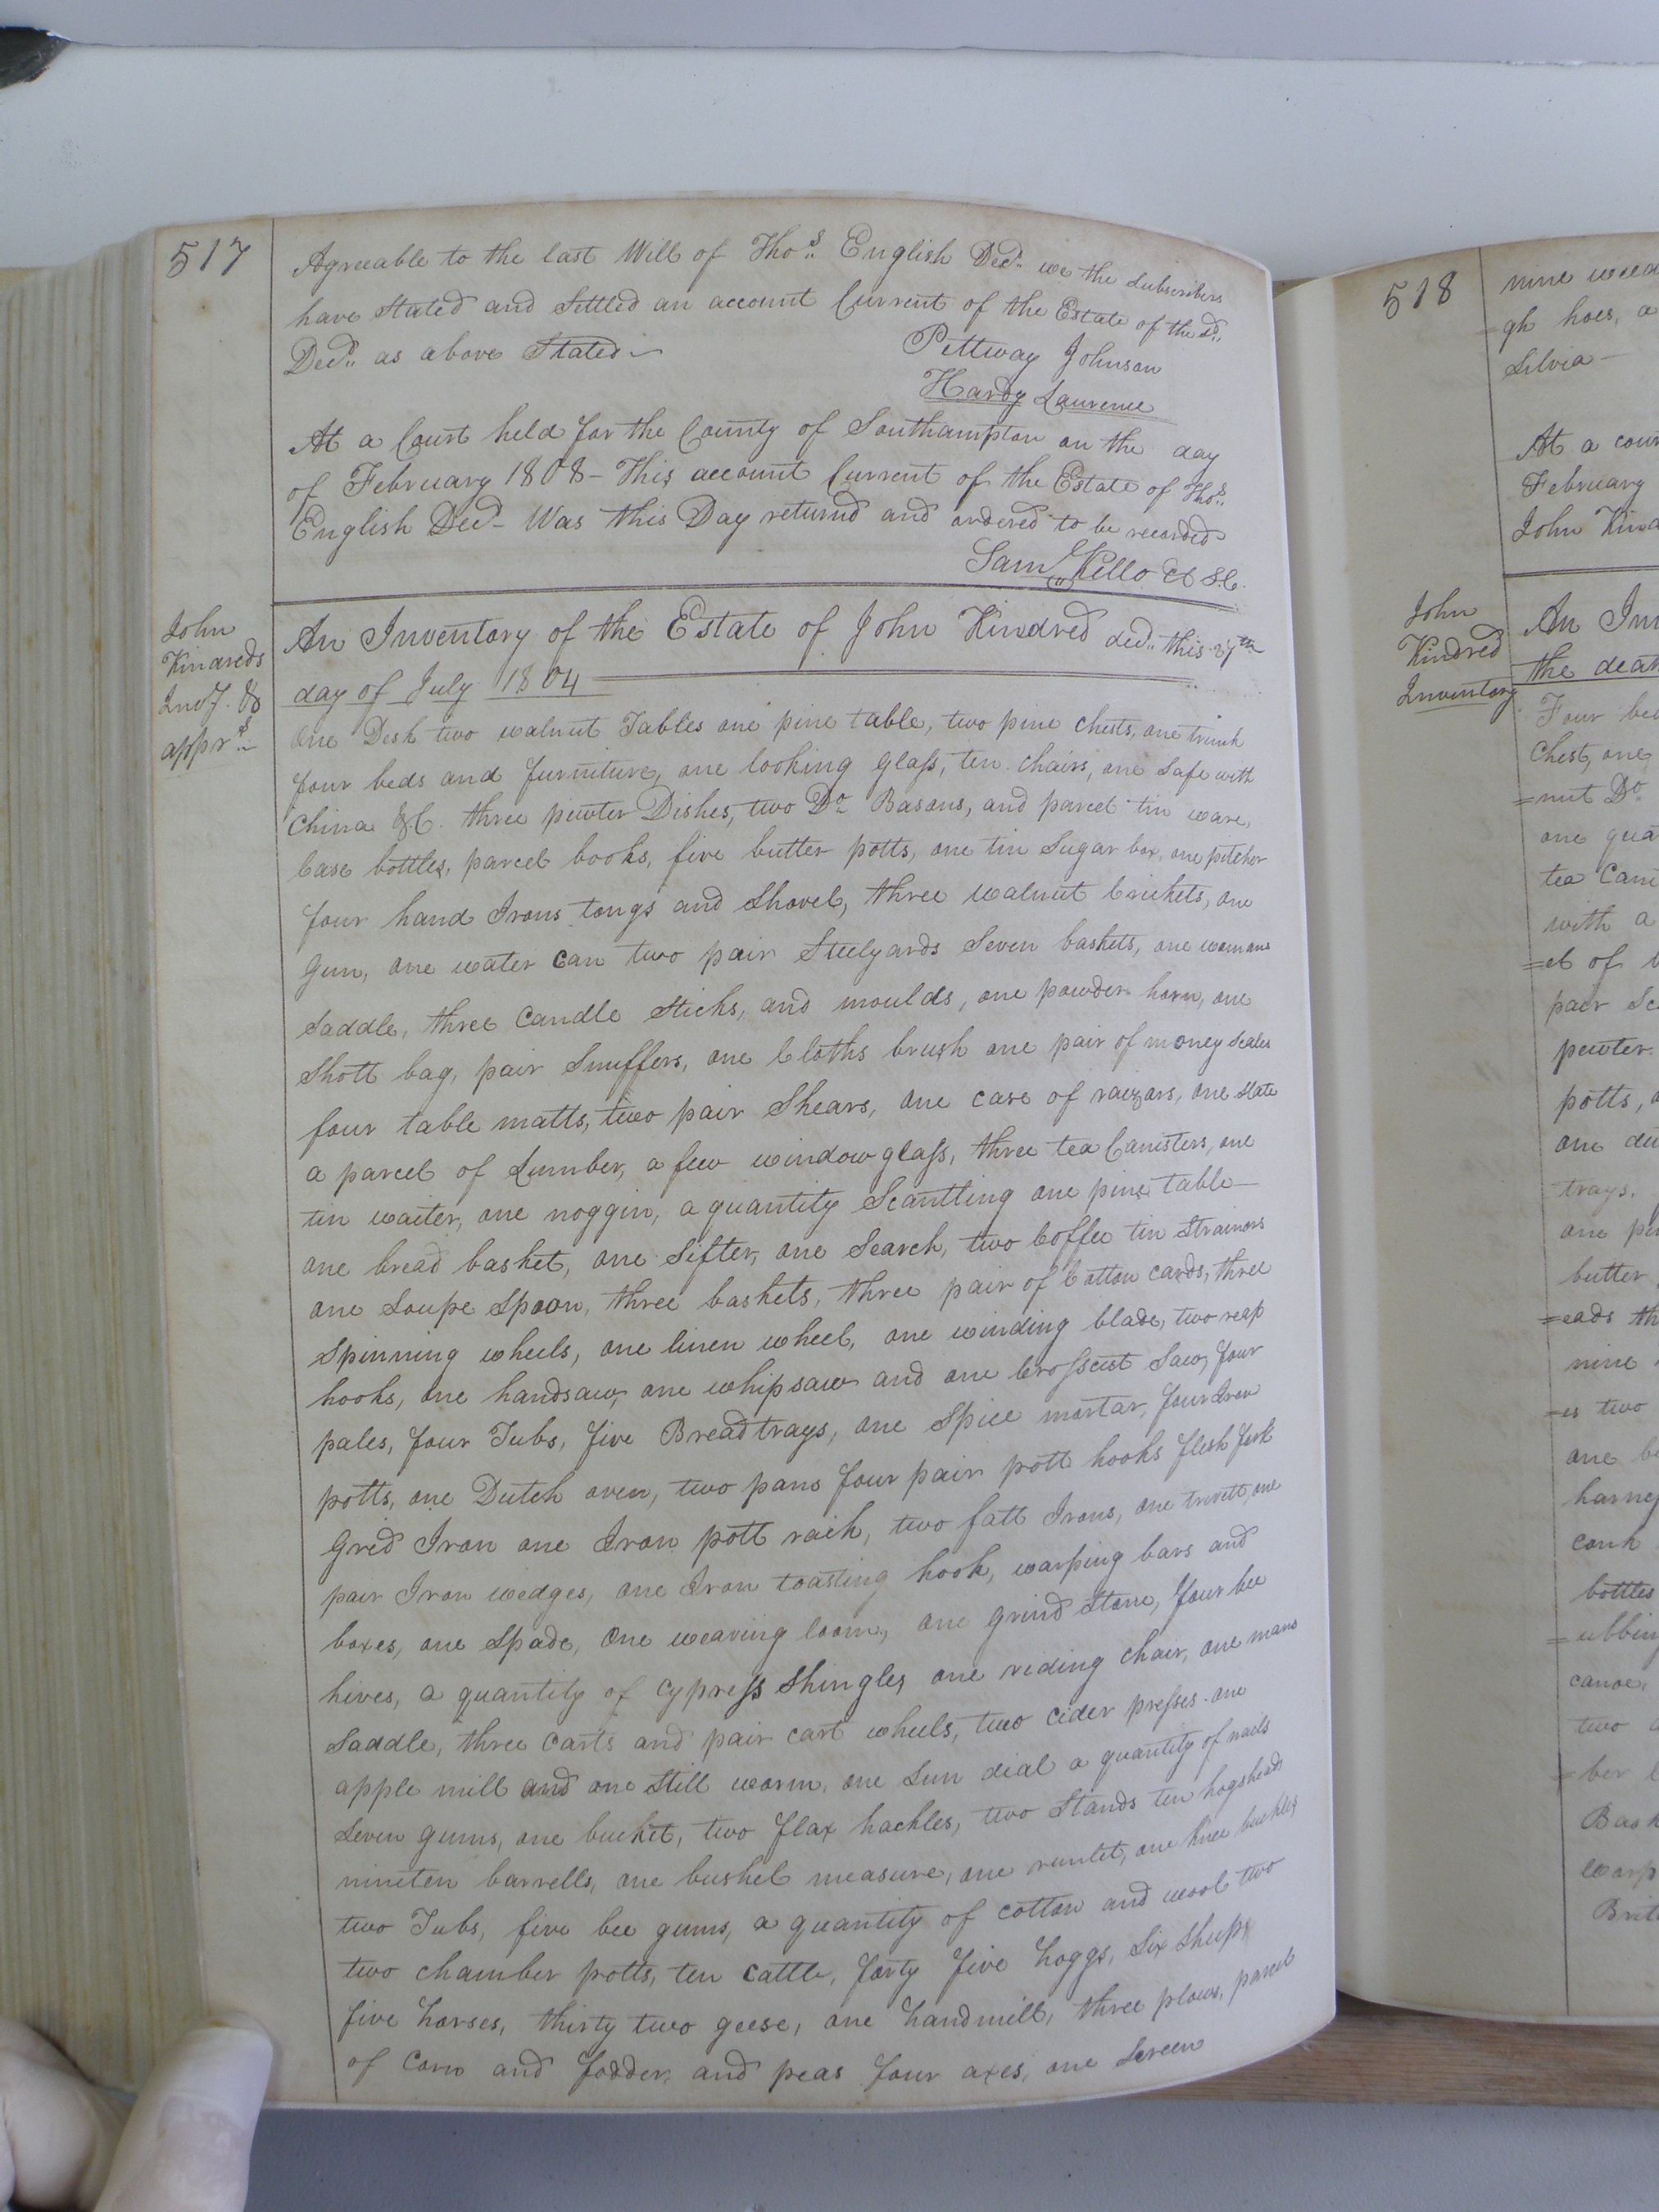 517
Agreeable to the last Will of Thos. English Decd. we the Subscribers
have Stated and Settled an account Current of the Estate of the sd.
Decd. as above Stated
Pettway Johnson
Hardy Laurence
At a Court held for the County of Southampton on the day
of February 1808 - This account Current of the Estate of Thos.
English Decd - Was this Day returnd and ordered to be recorded
Saml Kello Cl S.C.
John
Kindreds
Invy. &
apprt.
An Inventory of the Estate of John Kindred decd. this 27th
day of July 1804
One Desk two walnut Tables one pine table, two pine Chests, one trunk
four beds and furniture, one looking Glass, ten chairs, one Safe with
China &C. three pewter Dishes, two Do Basons, and parcel tin ware,
Case bottles, parcel books, five butter potts, one tin Sugar box, one pitcher
four hand Irons tongs and Shovel, three walnut Crickets, one
Gun, one water Can two pair Steelyards Seven baskets, one womans
Saddle, three Candle Sticks, and moulds, one powder horn, one
Shott bag, pair Snuffers, one Cloths brush one pair of money Scales
four table matts, two pair Shears, one case of raizors, one slate
a parcel of Lumber, a few window glass, three tea Canisters, one
tin waiter, one noggin, a quantity Scantling one pine table
one bread basket, one Sifter, one Search, two Coffee tin Strainers
one Soupe Spoon, three baskets, three pair of Cotton cards, three
Spinning wheels, one linen wheel, one winding blade, two reap
hooks, one handsaw, one whipsaw and one Crosscut Saw, four
pales, four Tubs, five Bread trays, one Spice mortar, four Iron
potts, one Dutch oven, two pans four pair pott hooks flesh fork
Grid Iron one Iron pott rack, two fatt Irons, one trivett, one
pair Iron wedges, one Iron toasting hook, warping bars and
boxes, one Spade, One weaving loom, one grind Stone, four bee
hives, a quantity of Cypress Shingles one riding Chair, one mans
Saddle, three Carts and pair cart wheels, two cider presses one
apple mill and one Still worm, one Sun dial a quantity of nails
Seven gums, one bucket, two flax hackles, two Stands ten hogsheads
nineten barrells, one bushel measure, one runlet, one knee buckles
two Tubs, five bee gums, a quantity of cotton and wool two
two chamber potts, ten Cattle, forty five hoggs, Six Sheep,
five horses, thirty two geese, one handmill, three plows, parcel
of Corn and fodder, and peas four axes, one Screen
518
nine weed
=gh hoes, a
Silvia -
At a cour
February
John Kind
John
Kindred
Inventory
An Inv
the deat
Four bed
Chest, one
=nut Do
one qua
tea Cani
with a
=el of
pair Sc
pewter
potts,
one du
trays,
one pe
butter
=eads th
nine
=es two
one be
harnes
bottles
=ubbing
canoe,
two
=ber
Bask
warp